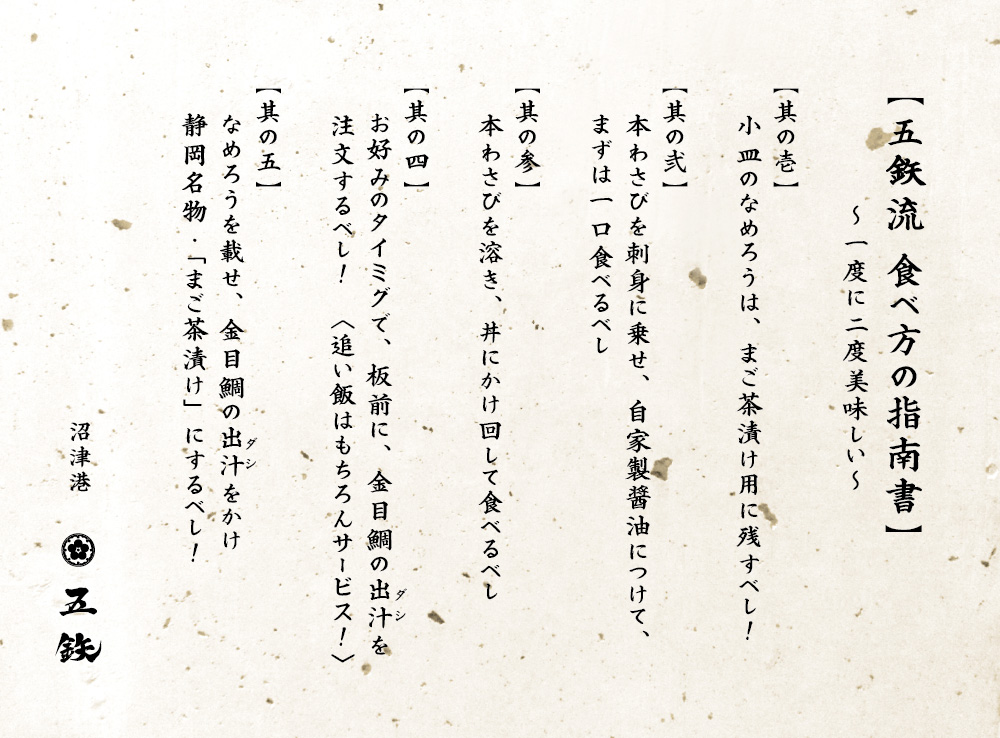 【五鉃流 食べ方の指南書】
～一度に二度美味しい～
【其の壱】
小皿のなめろうは、まご茶漬け用に残すべし！
【其の弐】
本わさびを刺身に乗せ、自家製醤油につけて、
まずは一口食べるべし
【其の参】
本わさびを溶き、丼にかけ回して食べるべし
【其の四】
お好みのタイミグで、板前に、金目鯛の出汁を
ダシ
注文するべし！ 〈追い飯はもちろんサービス！〉
【其の五】
なめろうを載せ、金目鯛の出汁をかけ
ダシ
静岡名物・「まご茶漬け」にするべし！
沼津港
五鉃